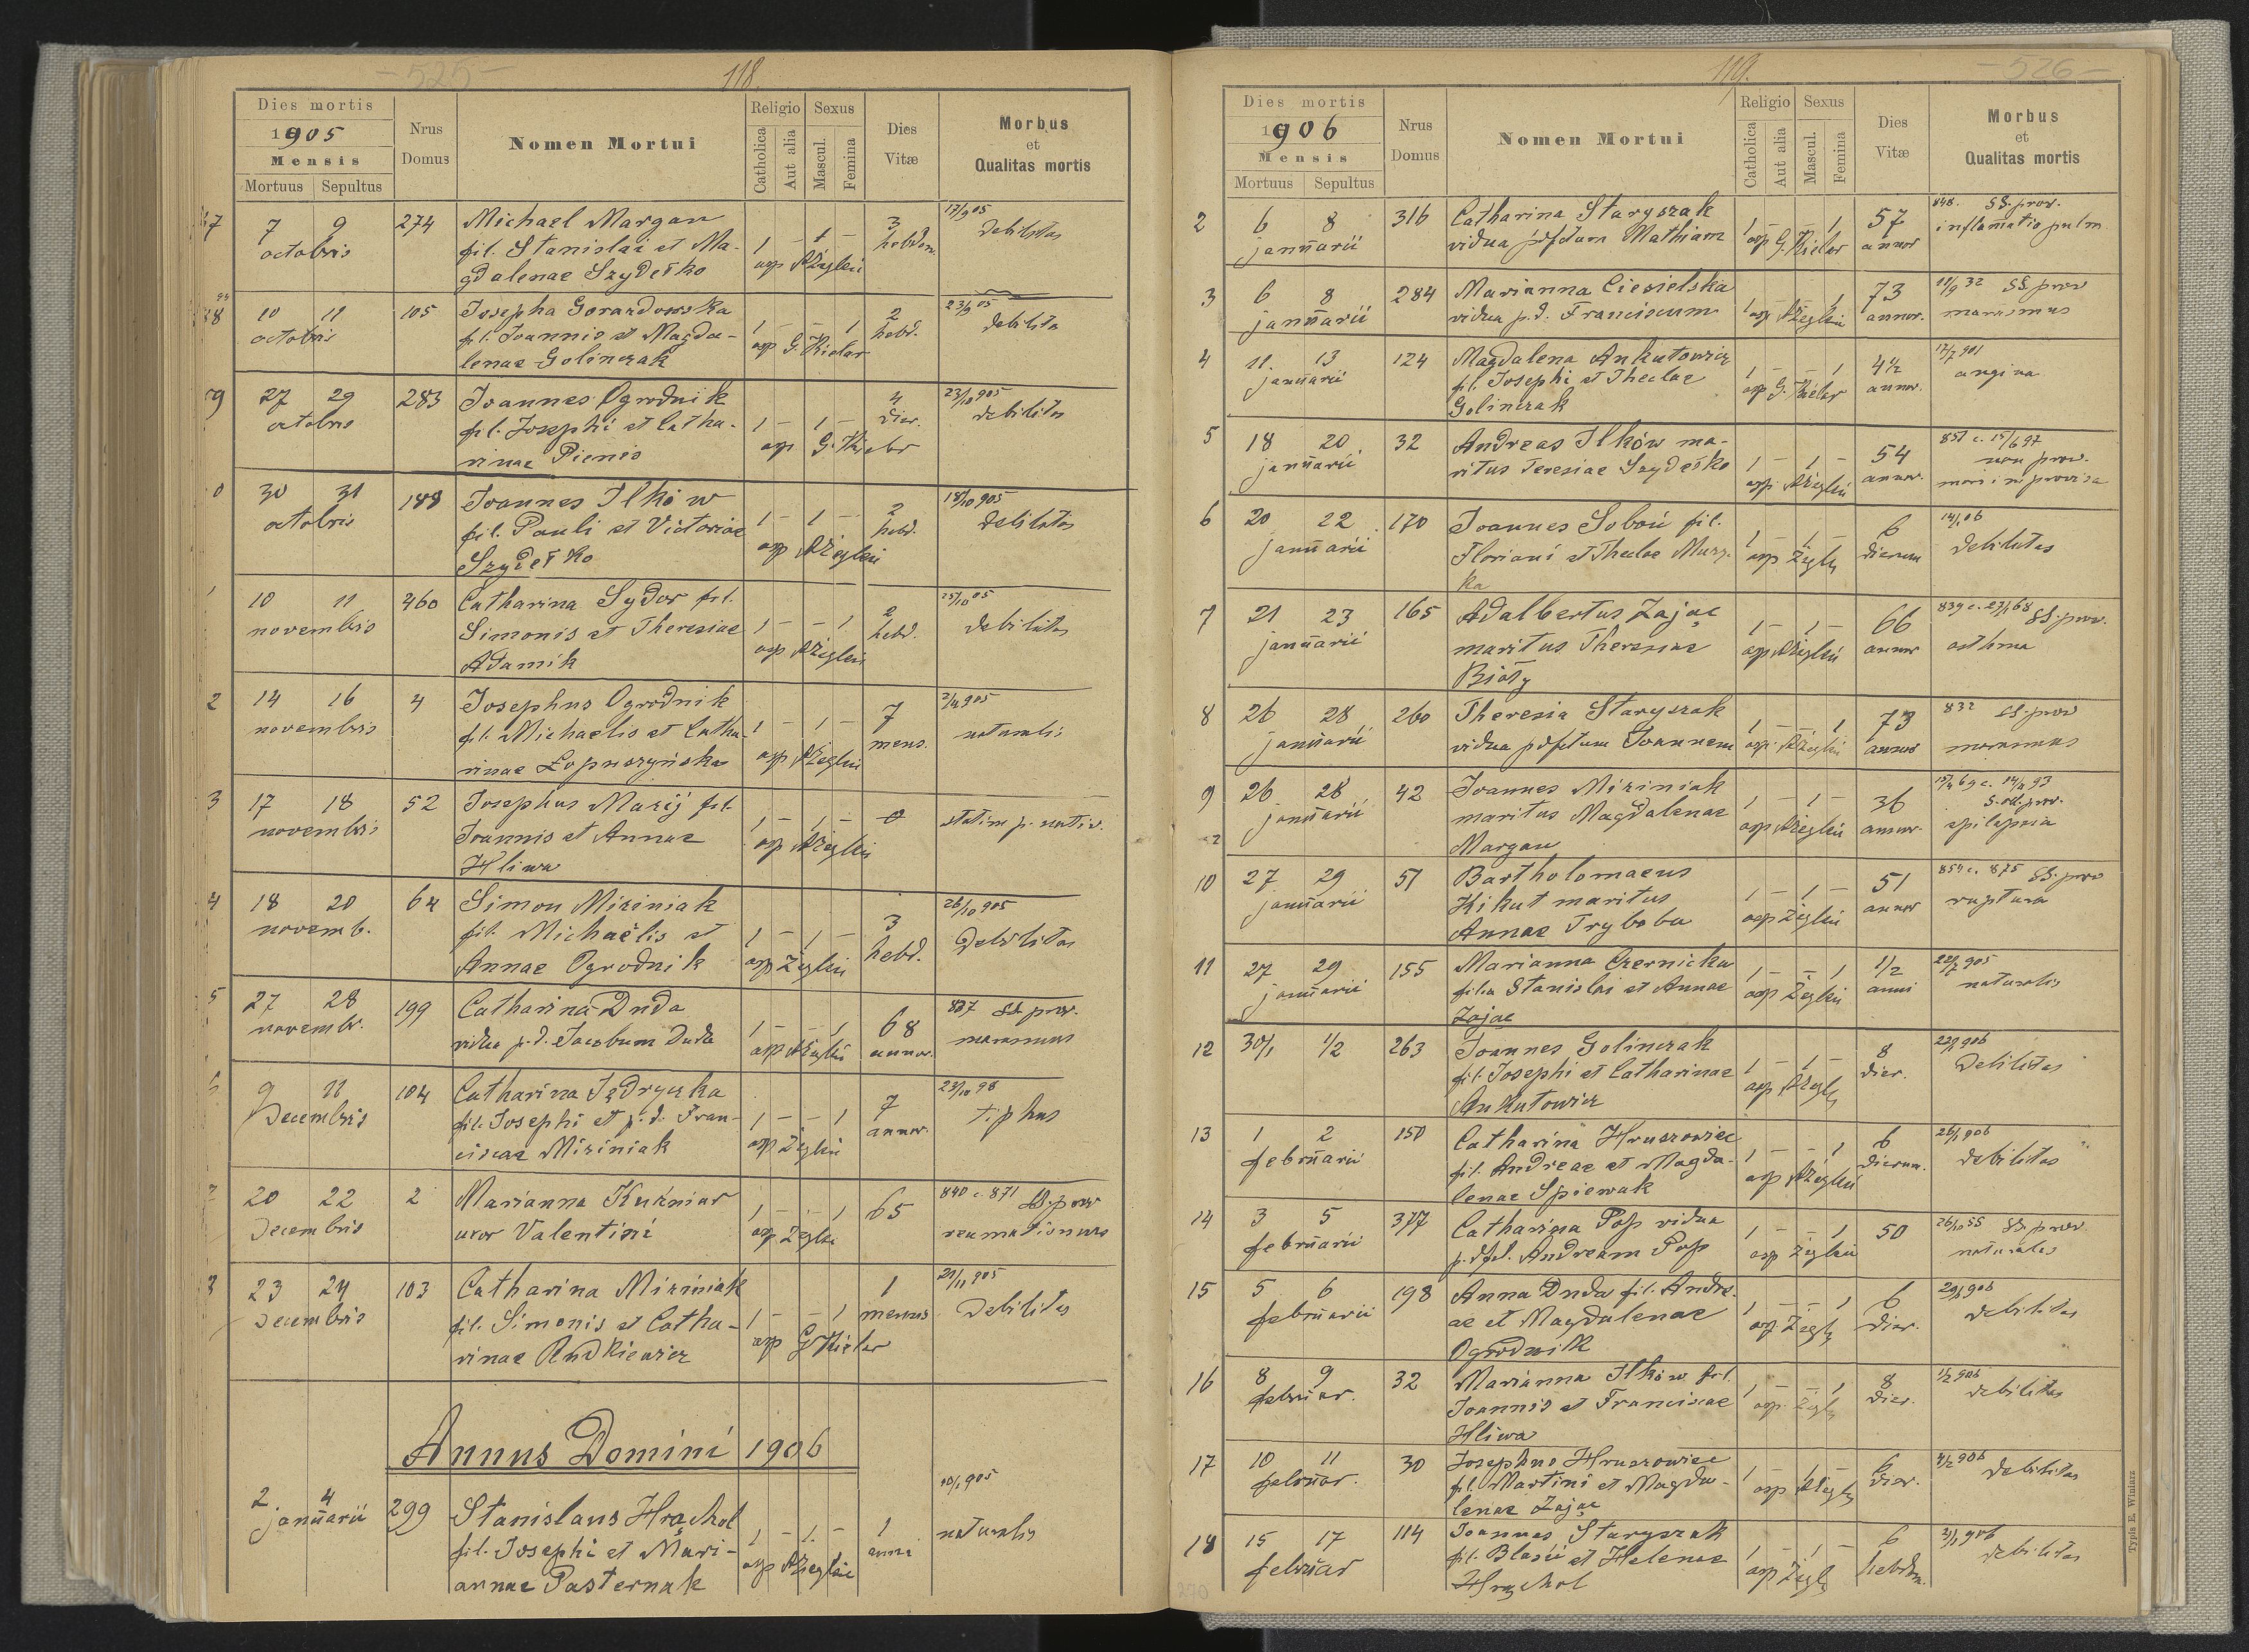 - 525 -
118.
Dies mortis
1905
Mensis
Mortuus Sepultus
Nrus Domus
Nomen Mortui
Religio
Catholica
Aut alia
Sexus
Mascul.
Femina
Dies Vitæ
Morbus
et
Qualitas mortis
7 9 274 Michael Margan 3 17/9 05
octobris fil. Stanislai et Ma- 1 - 1 - hebdom. debilitas
gdalenae Szydełko asp AŻegleń
10 11 105 Josepha Gorazdowska 2 23/9 05
octobris fil. Joannis et Magda- 1 - - 1 hebd. debilitas
lenae Golinczak asp G. Kielar
27 29 283 Joannes Ogrodnik 4 23/10 905
octobris fil. Josephi et Catha- 1 - 1 - dier. debilitas
rinae Pienis asp G. Kielar
30 31 188 Joannes Ilków 2 18/10 905
octobris fil. Pauli et Victoriae 1 - 1 - hebd. debilitas
Szydełko asp AŻegleń
10 11 260 Catharina Sydor fil. 2 25/10 05
novembris Simonis et Theresiae 1 - - 1 hebd. debilitas
Adamik asp AŻegleń
2 14 16 4 Josephus Ogrodnik 7
novembris fil. Michaelis et Catha- 1 - 1 - mens. naturalis
rinae Łopuszyńska asp AŻegleń
3 17 18 52 Josephus Marij fil. 0 statim p. nativ.
novembris Joannis et Annae 1 - 1 -
Hliwa asp AŻegleń
4 18 20 64 Simon Miziniak 3 26/10 905
novemb. fil. Michaëlis et 1 - 1 - hebd. Debilitas
Annae Ogrodnik asp Żegleń
5 27 28 199 Catharina Duda 68 837 SS. prov.
novembr. vidua p.d. Jacobum Duda 1 - - 1 annor. marasmus
asp AŻegleń
9 11 104 Catharina Jędryczka 7 23/10 98
Decembris fil. Josephi et p.d. Fran- 1 - - 1 annor. tiphus
ciscae Miziniak asp Żegleń
20 22 2 Marianna Kuźniar 65 840 c. 871 SS. prov
Decembris uxor Valentini 1 - - 1 reumatismus
asp Żegleń
3 23 24 103 Catharina Miziniak 1 21/11 905
Decembris fil. Simonis et Catha- 1 - - 1 mensis Debilitas
rinae Rudkiewicz asp G Kielar
Annus Domini 1906
2 4 299 Stanislaus Hrąchol 1 10/1 905
januarii fil. Josephi et Mari- 1 - 1 - anni naturalis
annae Pasternak asp AŻegleń
119.
- 526 -
Dies mortis
1906
Mensis
Mortuus Sepultus
Nrus Domus
Nomen Mortui
Religio
Catholica
Aut alia
Sexus
Mascul.
Femina
Dies Vitæ
Morbus
et
Qualitas mortis
2 6 8 316 Catharina Staryszak 57 848. SS. prov.
januarii vidua p defctum Mathiam 1 - - 1 annor inflamatio pulm
asp G. Kielar
3 6 8 284 Marianna Ciesielska 73 11/9 32 SS prov
januarii vidua p.d. Franciscum 1 - - 1 annor. marasmus
asp AŻegleń
4 11. 13 124 Magdalena Ankutowicz 4½ 17/7 901
januarii fil. Josephi et Theclae 1 - - 1 annor. angina
Golinczak asp G. Kielar
5 18 20 32 Andreas Ilków ma- 54 851 c. 15/6 97
januarii ritus Teresiae Szydełko 1 - 1 - annor. non prov.
asp AŻegleń mors improvisa
6 20 22 170 Joannes Soboń fil. 6 14/1 06
januarii Floriani et Theclae Murz- 1 - 1 - dierum debilitas
ka asp Żegleń
7 21 23 165 Adalbertus Zając 66 839 c. 27/1 68 SS. prov.
januarii maritus Theresiae 1 - 1 - annor asthma
Biały asp AŻegleń
8 26 28 260 Theresia Staryszak 73 832 SS. prov
januarii vidua p defctum Joannem 1 - - 1 annor marasmus
asp. AŻegleń
9 26 28 42 Joannes Miziniak 36
januarii maritus Magdalenae 1 - 1 - annor. epilepsia
Margan asp AŻegleń
10 27 29 51 Bartholomaeus 51 854 c. 875 SS. prov
januarii Kikut maritus 1 - 1 - annor ruptura
Annae Tryboba asp Żegleń
11 27 29 155 Marianna Czernicka 1/2 22/7 905
januarii filia Stanislai et Annae 1 - - 1 anni naturalis
Zając asp Żegleń
12 30/1 1/2 263 Joannes Golinczak 8 22/1 906
fil. Josephi et Catharinae 1 - 1 - dier. Debilitas
Ankutowicz asp AŻegleń
13 1 2 150 Catharina Hruszowiec 6 26/1 906
februarii fil. Andreae et Magda- 1 - - 1 dierum. debilitas
lenae Spiewak asp AŻegleń
14 3 5 377 Catharina Pop vidua 50 SS. prov.
februarii p. dfct. Andream Pop 1 - - 1 naturales
asp Żegleń
15 5 6 198 Anna Duda fil. Andre- 6 29/1 906
februarii ae et Magdalenae 1 - - 1 dier. debilitas
Ogrodnik asp Żegleń
16 8 9 32 Marianna Ilków fil. 8 1/2 906
februar. Joannis et Franciscae 1 - - 1 dier. debilitas
Hliwa asp Żegleń
17 10 11 30 Josephus Hruszowiec 6 4/2 906
februar. fil. Martini et Magda- 1 - 1 - dier. debilitas
lenae Zając asp AŻegleń
18 15 17 114 Joannes Staryszak 6
februar fil. Blasii et Helenae 1 - 1 - hebdom. debilitas
Hrąchol asp Żegleń
270
Typis E. Winiarz